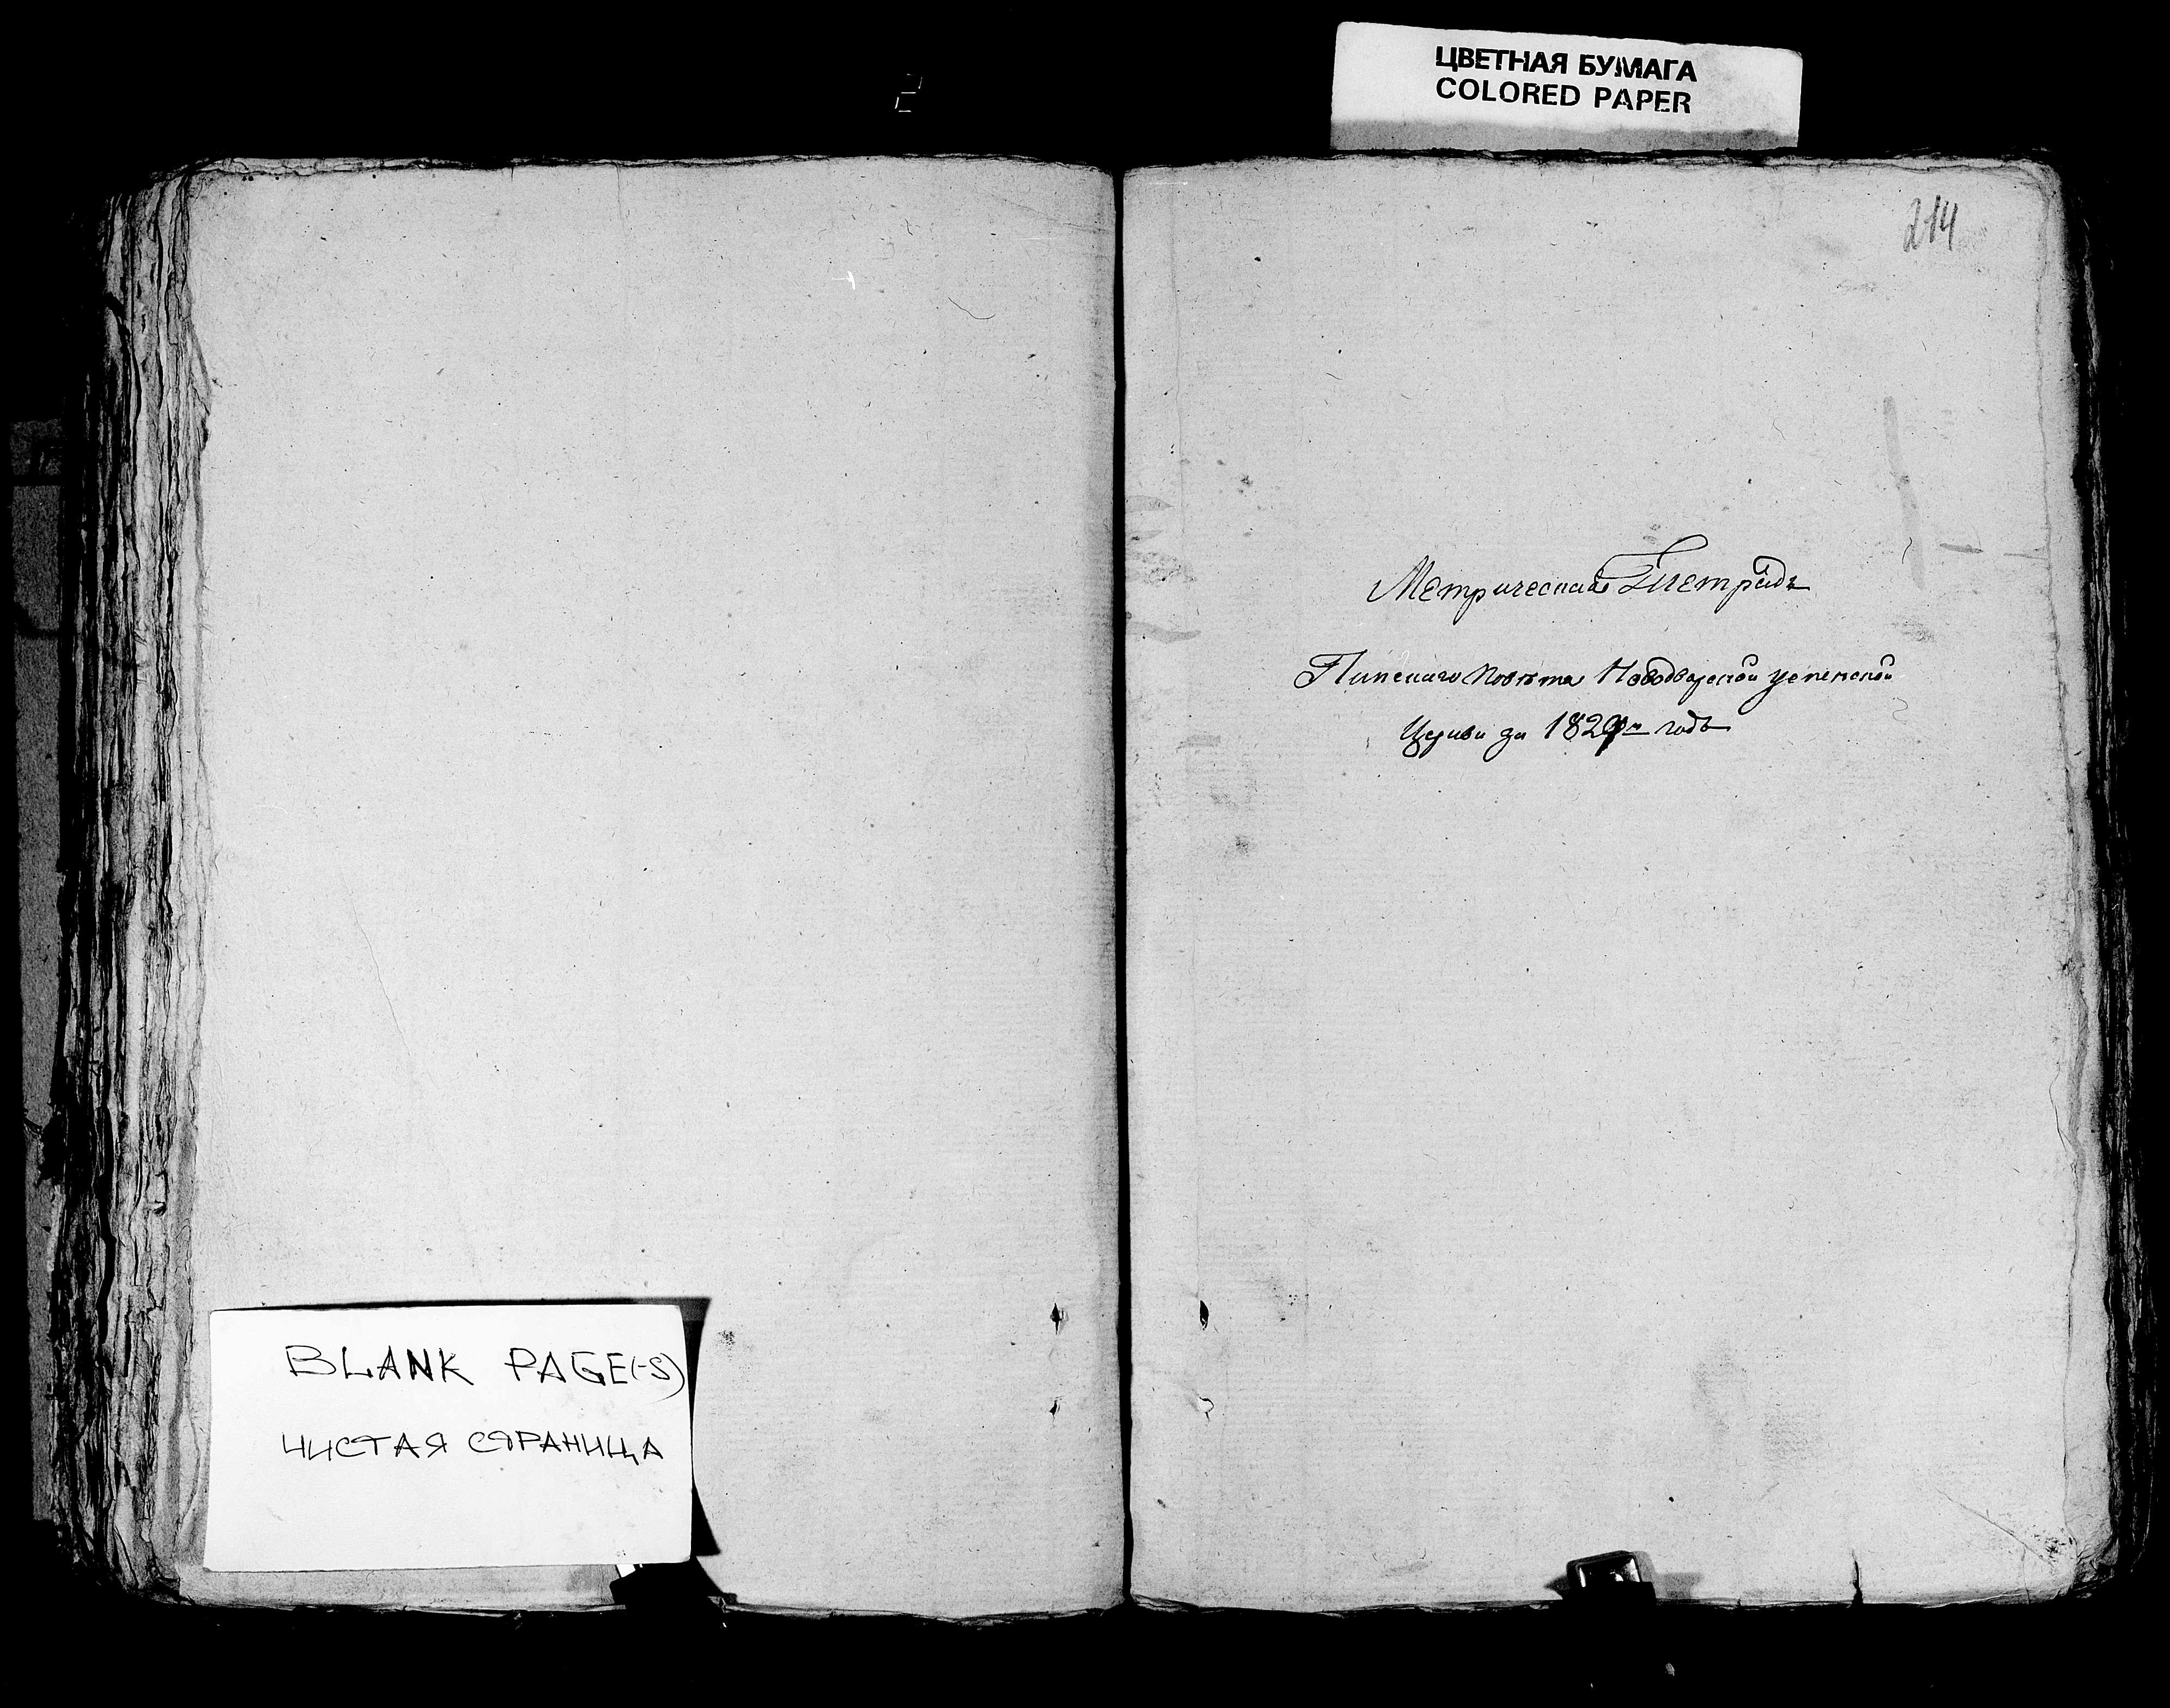 ЦВЕТНАЯ БУМАГА
COLORED PAPER
214
Метрическая Тетрадь
Пинскаго повѣта Новодворской успенской
Церкви за 1829й годъ
BLANK PAGE(-S)
ЧИСТАЯ СТРАНИЦА